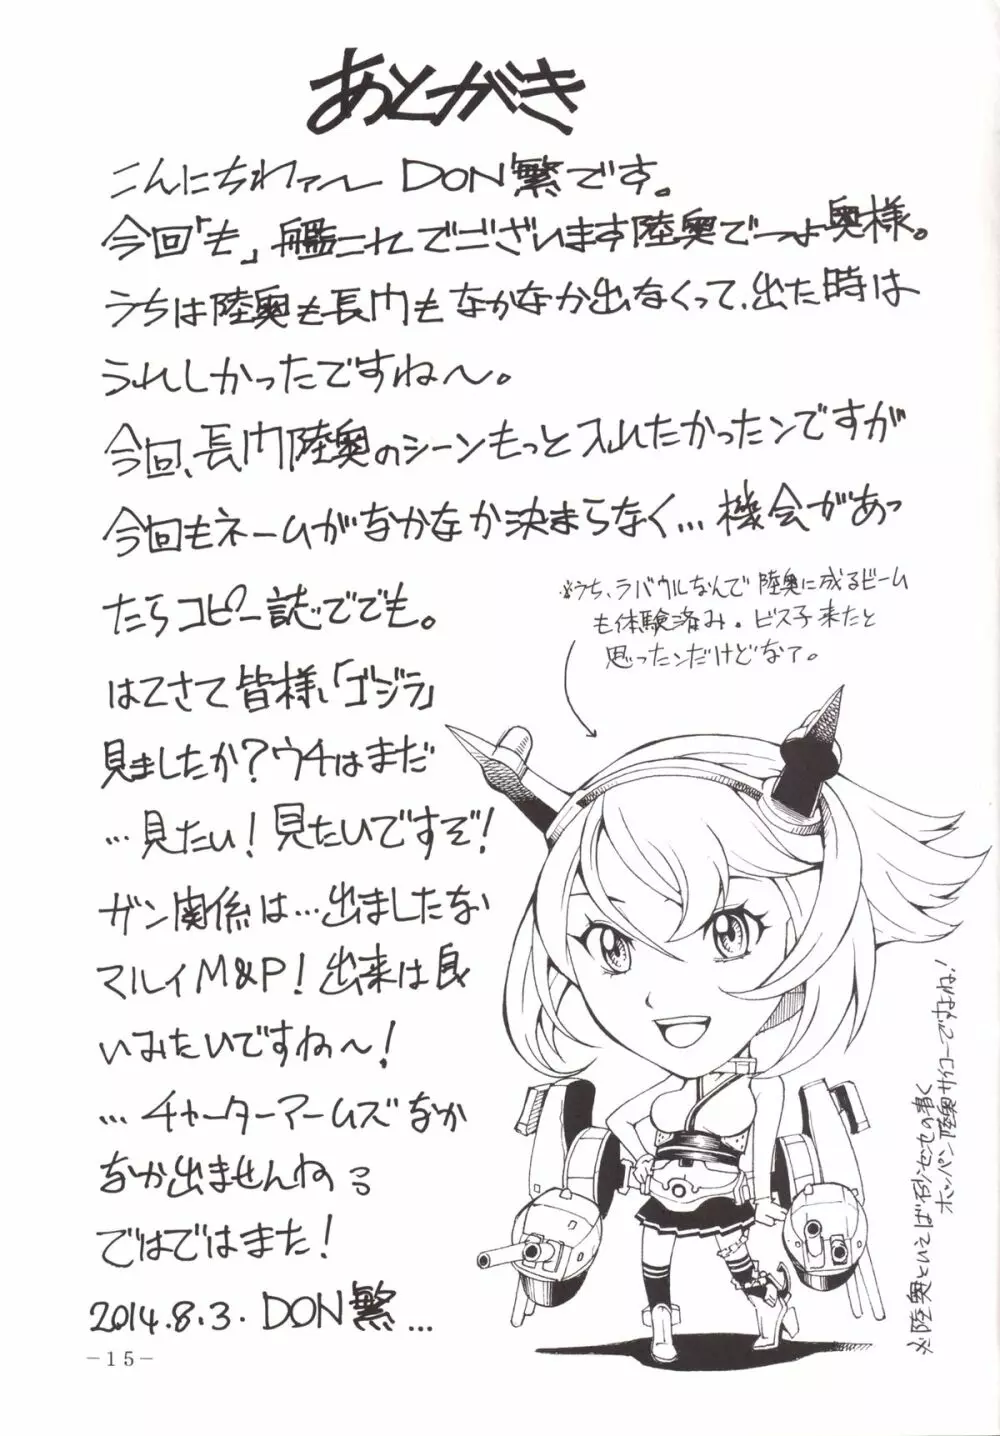 あとがき
こんにちわァ〜 DON繁です。
今回「も」艦これでございます陸奥でつよ奥様。
うちは陸奥も長門もなかなか出なくって、出た時は
うれしかったですね〜。
今回、長門陸奥のシーンもっと入れたかったンですが
今回もネームがなかなか決まらなく…機会があっ
たらコピー誌ででも。
※うち、ラバウルなんで陸奥に成るビーム
も体験済み。ビス子来たと
思ったンだけどなァ。
はてさて皆様、「ゴジラ」
見ましたか?ウチはまだ
…見たい!見たいですぞ!
ガン関係は…出ましたな
マルイM&P!出来は良
いみたいですね〜!
…チャーターアームズなか
なか出ませんねっ
ではではまた!
2014.8.3. DON繁…
※陸奥といえば
ボッパン陸奥サイコーですよね!
-15-